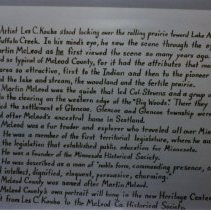 Artist Les C. Kouba stood looking over the rolling prairie toward Lake A
Buffalo Creek. In his mind's eye, he saw the scene through the ey
Martin McLeod as he first viewed the scene so many years ago.
d so typical of McLeod County, for it had the attributes that ma
area so attractive, first to the Indian and then to the pioneer
the lake and stream, the woodland and the fertile prairie.
Martin McLeod was the guide that led Col. Stevens and a group
to the clearing on the western edge of the "Big Woods." There they
ed the settlement of Glencoe. Glencoe and Glencoe township were
ed after McLeod's ancestral home in Scotland.
McLeod was a fur trader and explorer who traveled all over Min
He was a member of the first territorial legislature, where he au
the legislation that established public education for Minnesota.
He was a founder of the Minnesota Historical Society.
He was described as a man of "noble form, commanding presence,
intellect, dignified, eloquent, persuasive, charming."
McLeod County was named after Martin McLeod.
McLeod County's own portrait will hang in the new Heritage Center
t from Les C. Kouba to the McLeod Co. Historical Society.